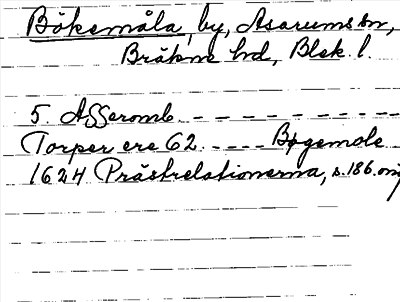 Bökemåla, by, Asarums sn,
Bräkne hd, Blek. l.
5. Asseromb - - - - - - - - -
Torper ere 62 - - - - Bøgemole
1624 Prästrelationerna, s. 186. orig